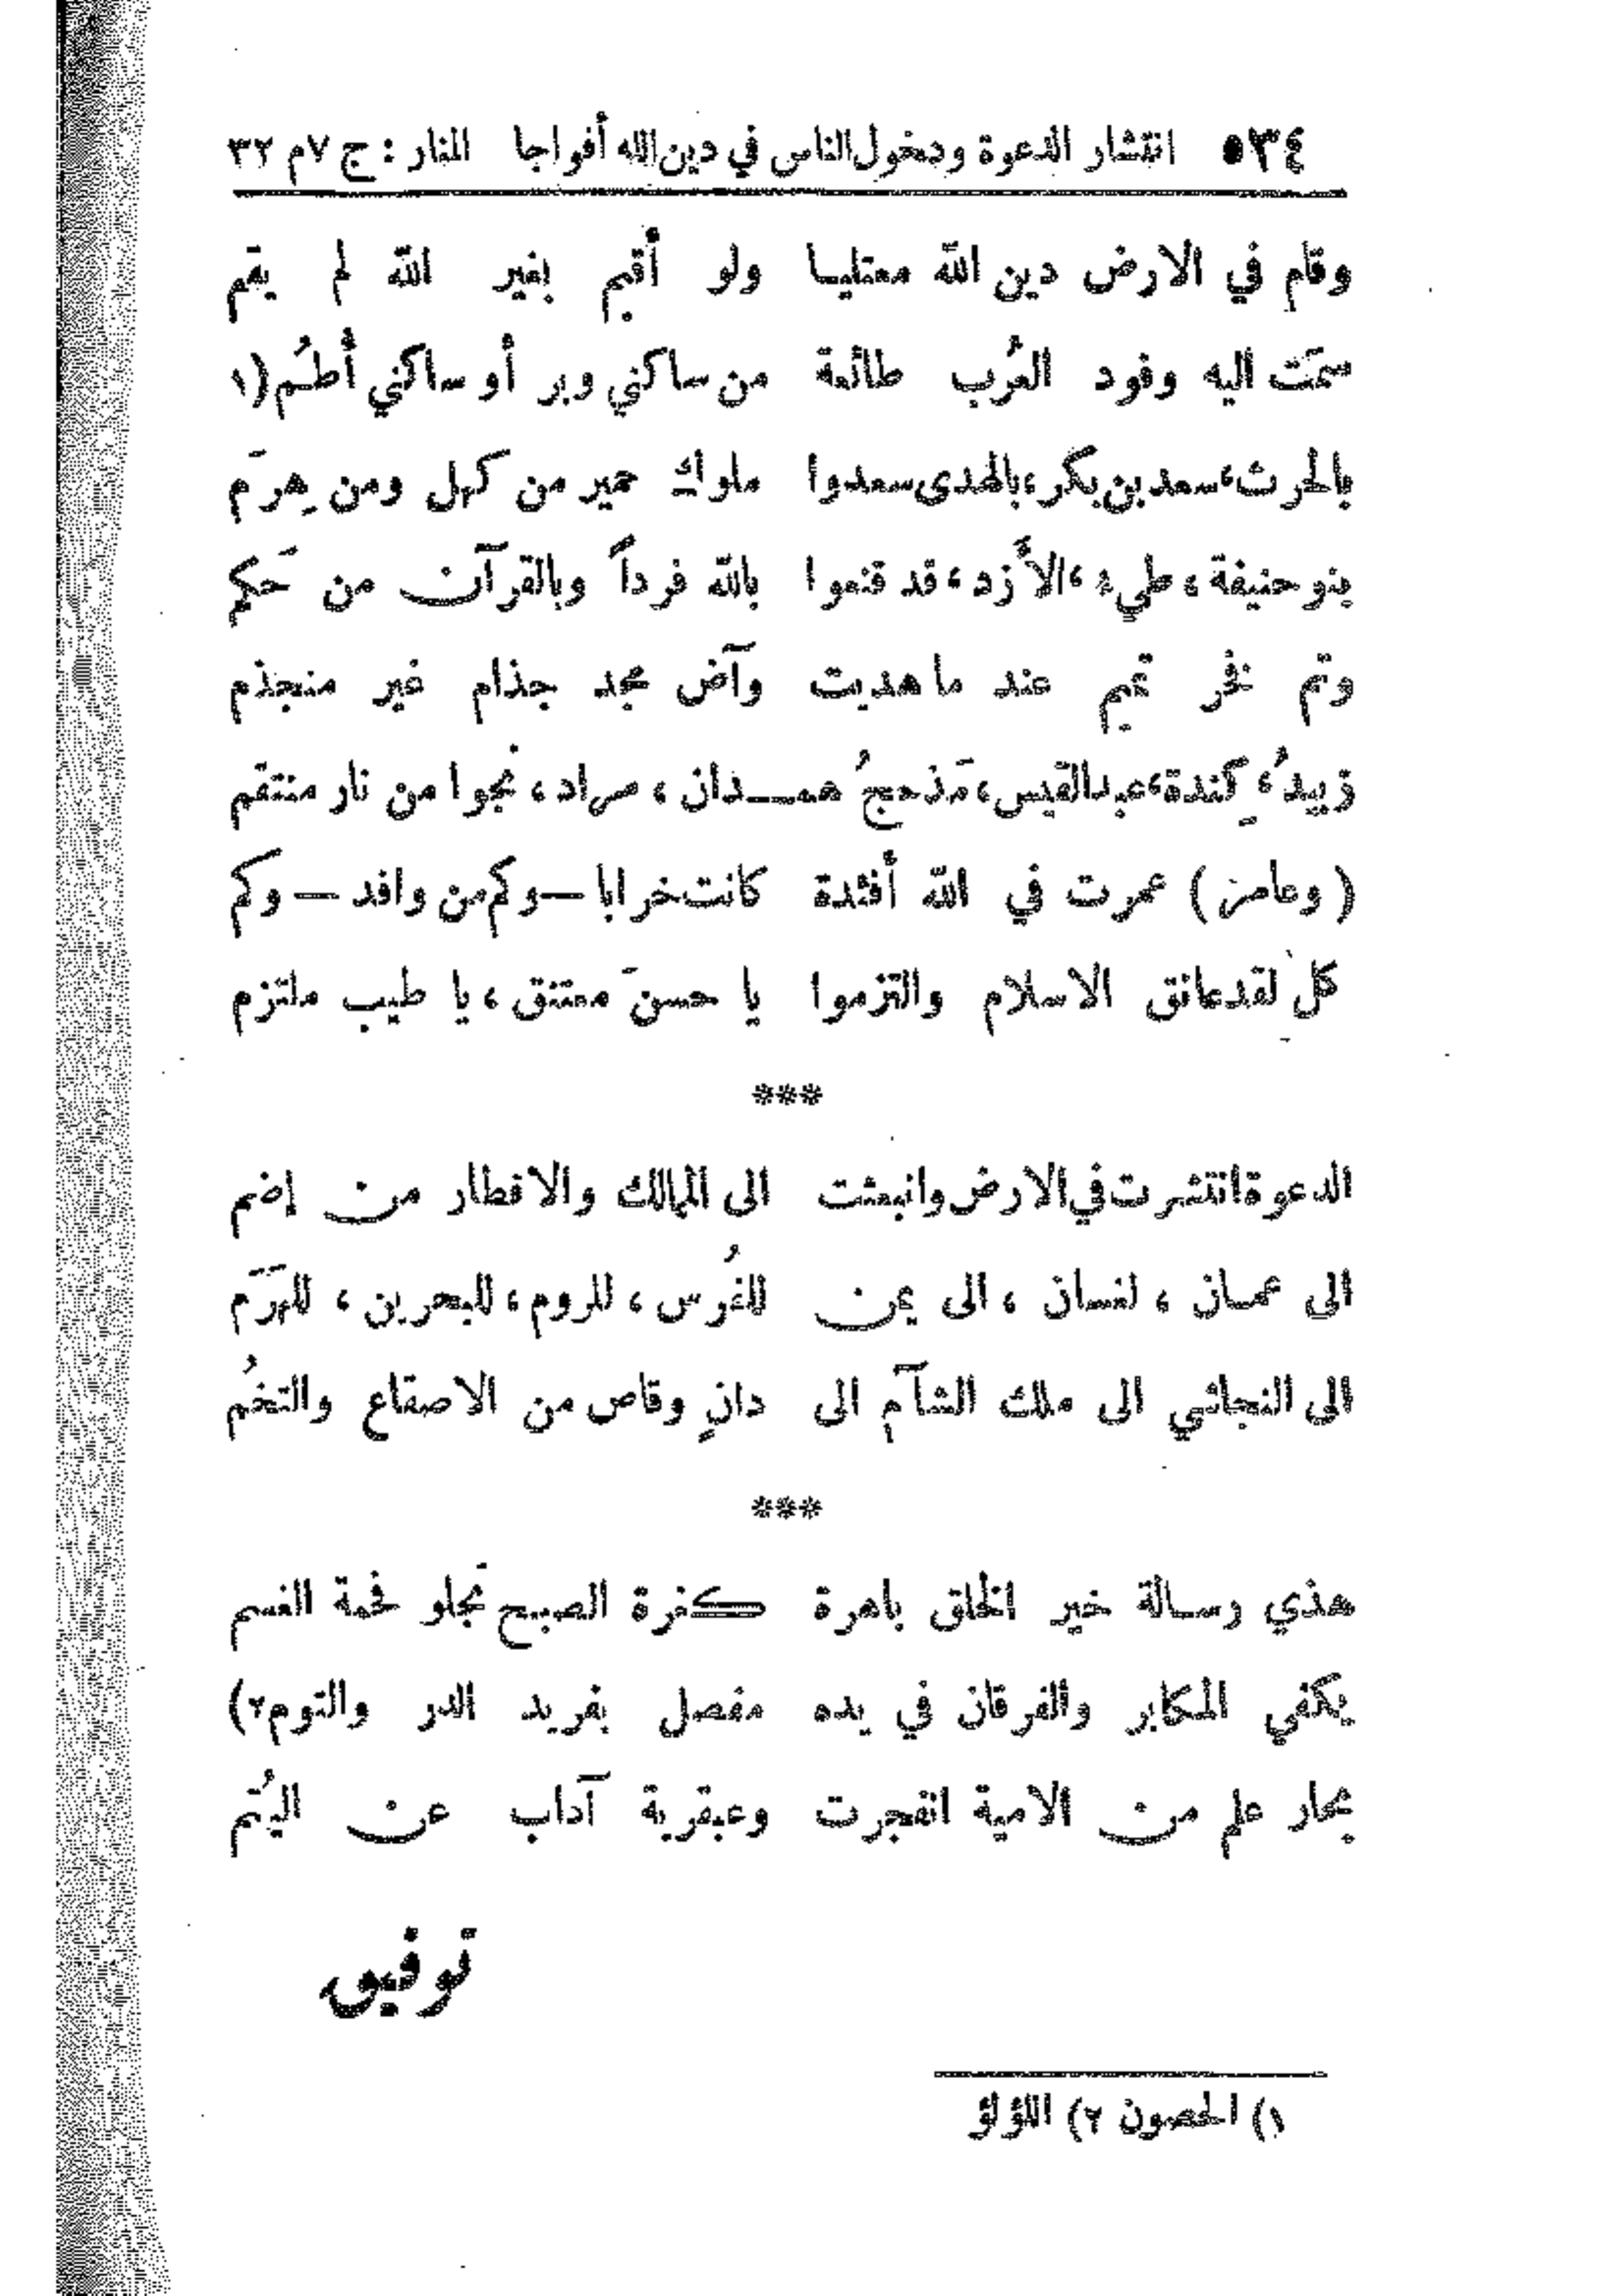 ٥٣٤ انتشار الدعوة ودخول الناس في دين الله أفواجا المنار : ج ٧ م ٣٢
وقام في الارض دين الله معتليا ولو أقيم بغير الله لم يقم
سمَت اليه وفود العُرب طائعة من ساكني وبر أو ساكني أُطُم(١
بالحرث، سعد بن بكر، بالهدى سعدوا ملوك حمير من كهل ومن هِرَم
بنو حنيفة ، طيء، الأزد، قد قنعوا بالله فرداً وبالقرآن من حَكم
وتم فخر تميم عند ما هديت وآض مجد جذام غير منجذم
زبيدُ، كِندة، عبد القيس، مَذحجُ همدان ، مراد، نجوا من نار منتقم
( وعامر ) عمرت في الله أفئدة كانت خرابا — وكم من وافد — وكم
كل لقد عانق الاسلام والتزموا يا حسنَ معتنق ، يا طيب ملتزم
***
الدعوة انتشرت في الارض وانبعثت الى الممالك والاقطار من إضم
الى عمان ، لغسان ، الى يمن للفُرس ، للروم ، للبحرين ، للهَرَم
الى النجاشي الى ملك الشآم الى دانٍ وقاص من الاصقاع والتخُم
***
هذي رسالة خير الخلق باهرة كغرة الصبح تَجلو فحمة الغسم
يكفي المكابر والفرقان في يده مفصل بفريد الدر والتوم٢)
بحار علم من الامية انفجرت وعبقرية آداب عن اليُتم
توفيق
١) الحصون ٢) اللؤلؤ